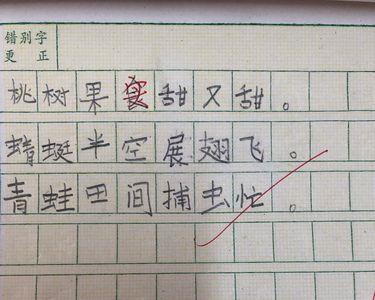 错别字
更正
桃树果甜又甜。
蜻蜓半空展翅飞。
青蛙田间捕虫忙。